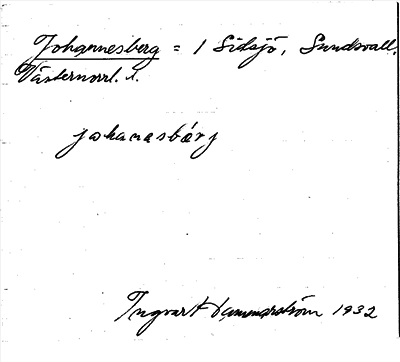 Johannesberg = 1 Sidsjö, Sundsvall,
Västernorrl. l.
johanasbárj
Ingvar Hammarström 1932